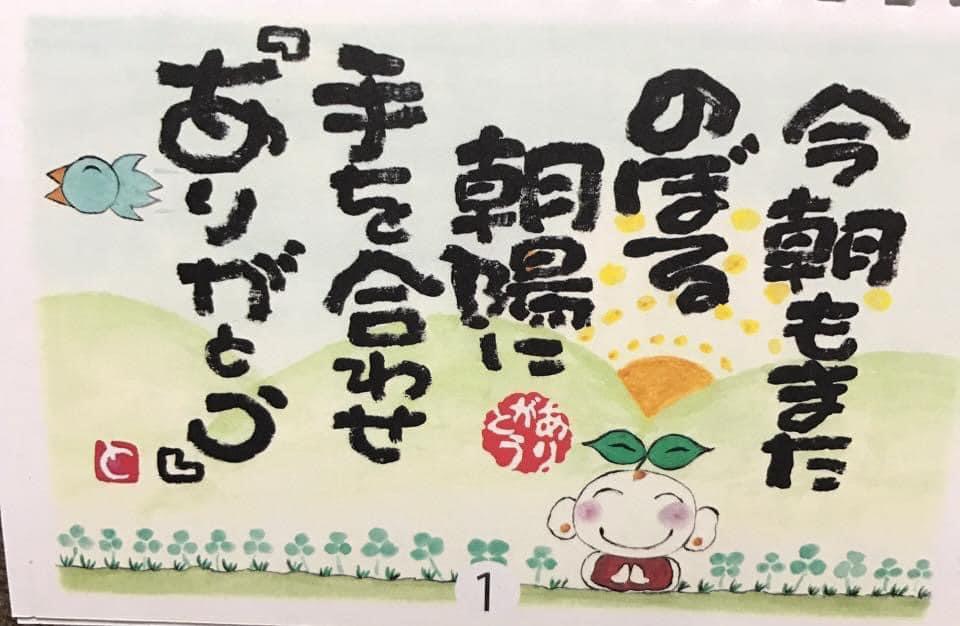 今朝もまた
のぼる
朝陽に
手を合わせ
『ありがとう』
ありがとう
と
1